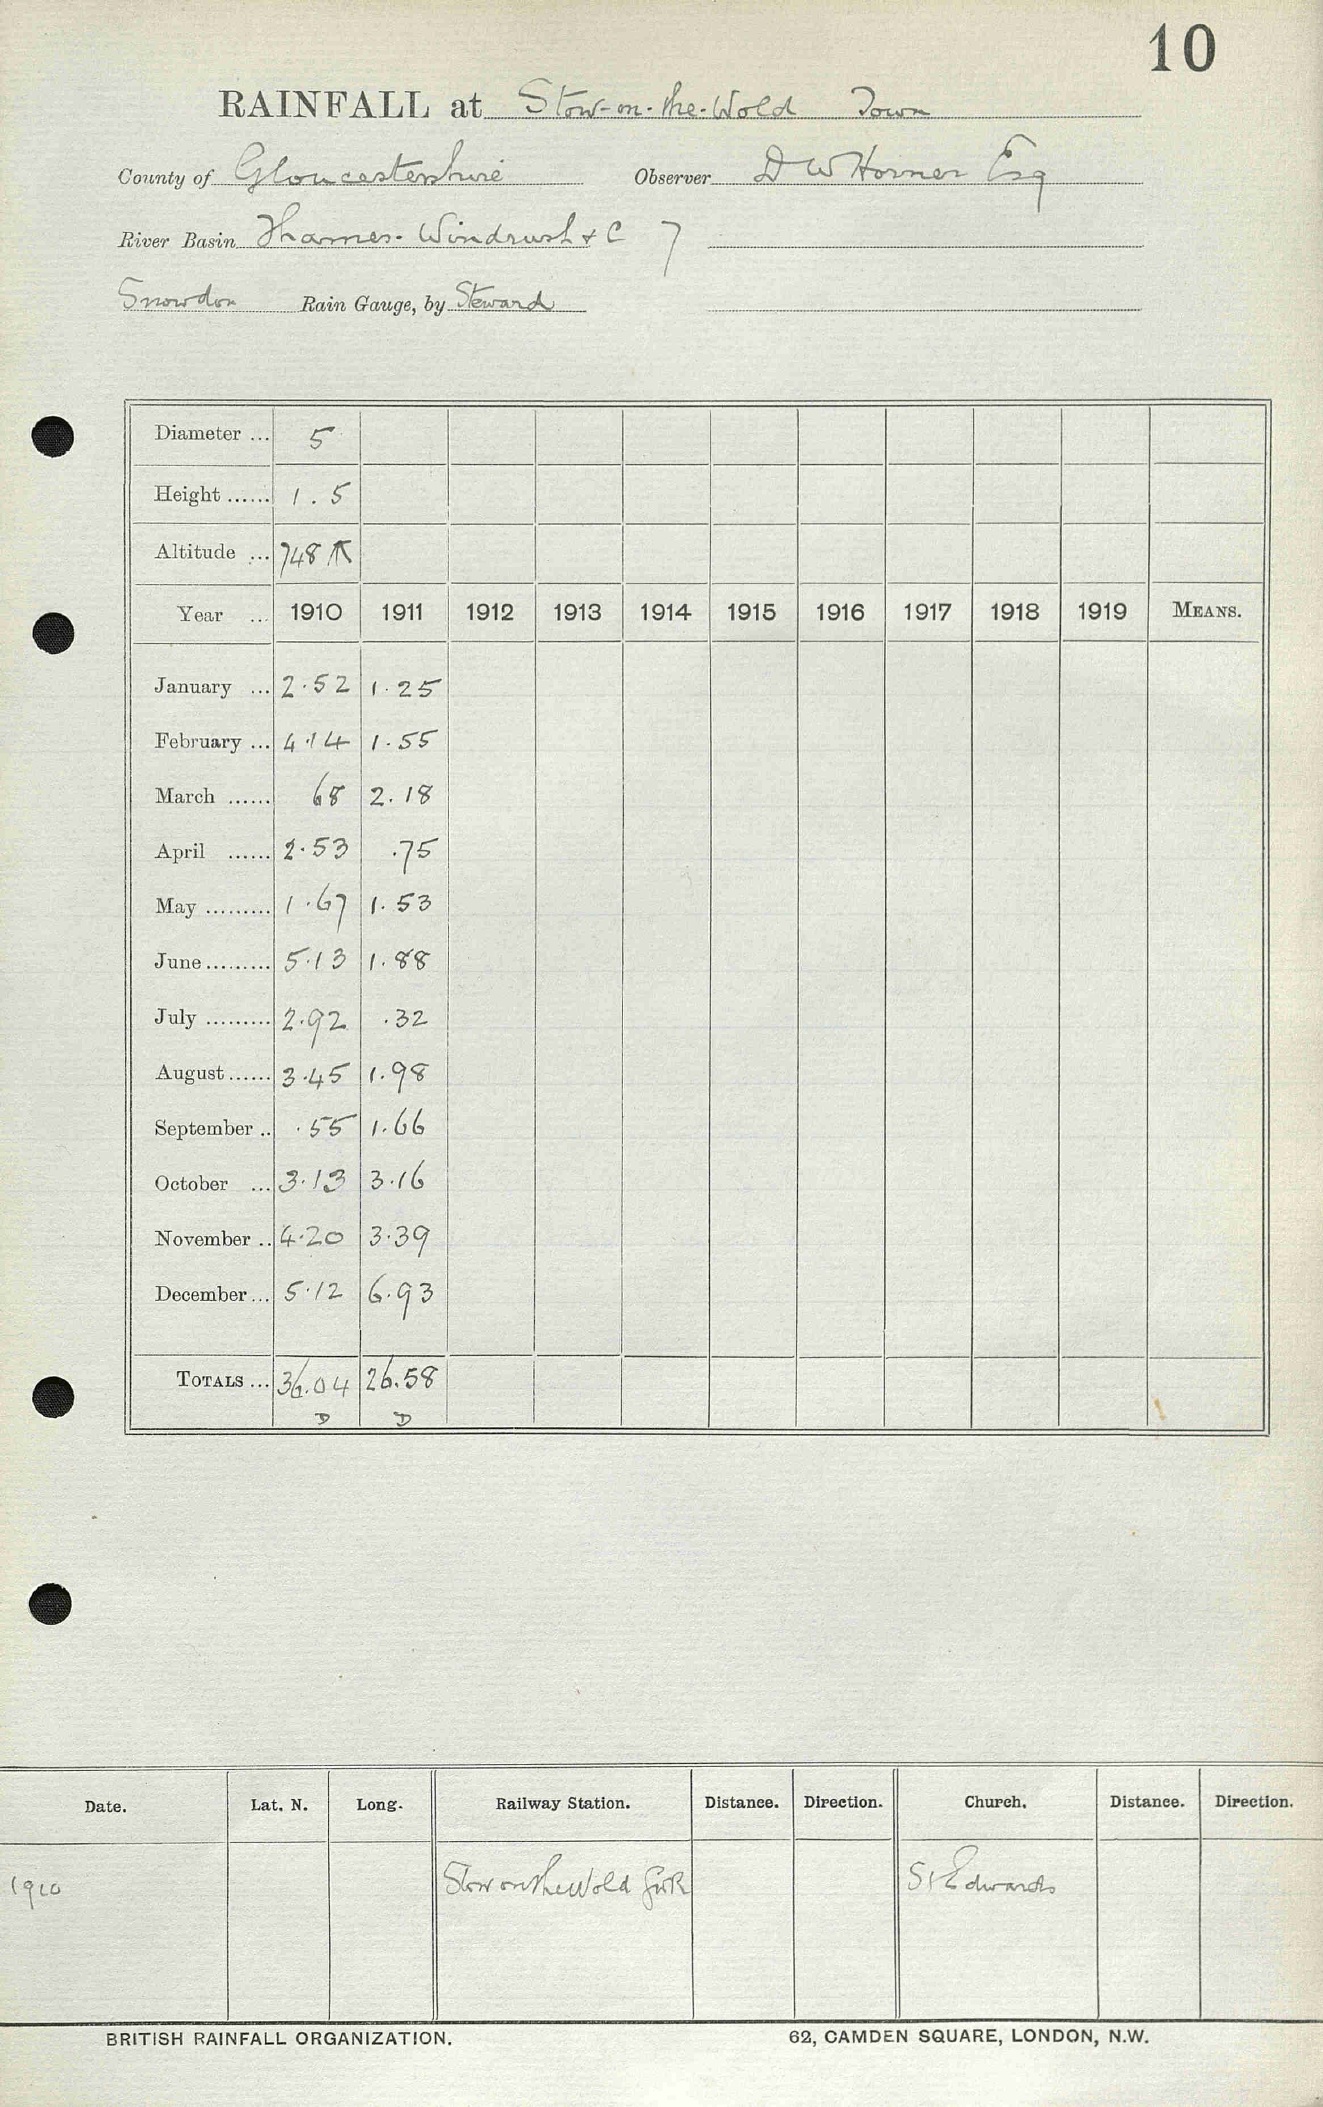 10
RAINFALL at Stow-on-the-Wold Town
County of Gloucestershire Observer D W Horner Esq
River Basin Thames. Windrush & C 7
Snowdon Rain Gauge, by Steward
Diameter ... 5
Height ...... 1.5
Altitude ... 748
Year ... 1910 1911 1912 1913 1914 1915 1916 1917 1918 1919 MEANS.
January ... 2.52 1.25
February ... 4.14 1.55
March ...... 68 2.18
April ...... 2.53 .75
May ......... 1.67 1.53
June ......... 5.13 1.88
July ......... 2.92 .32
August ...... 3.45 1.98
September .. .55 1.66
October ... 3.13 3.16
November .. 4.20 3.39
December ... 5.12 6.93
TOTALS ... 36.04 26.58
D D
Date. Lat. N. Long. Railway Station. Distance. Direction. Church. Distance. Direction.
1910 Stow on the Wold GWR St Edwards
BRITISH RAINFALL ORGANIZATION. 62, CAMDEN SQUARE, LONDON, N.W.